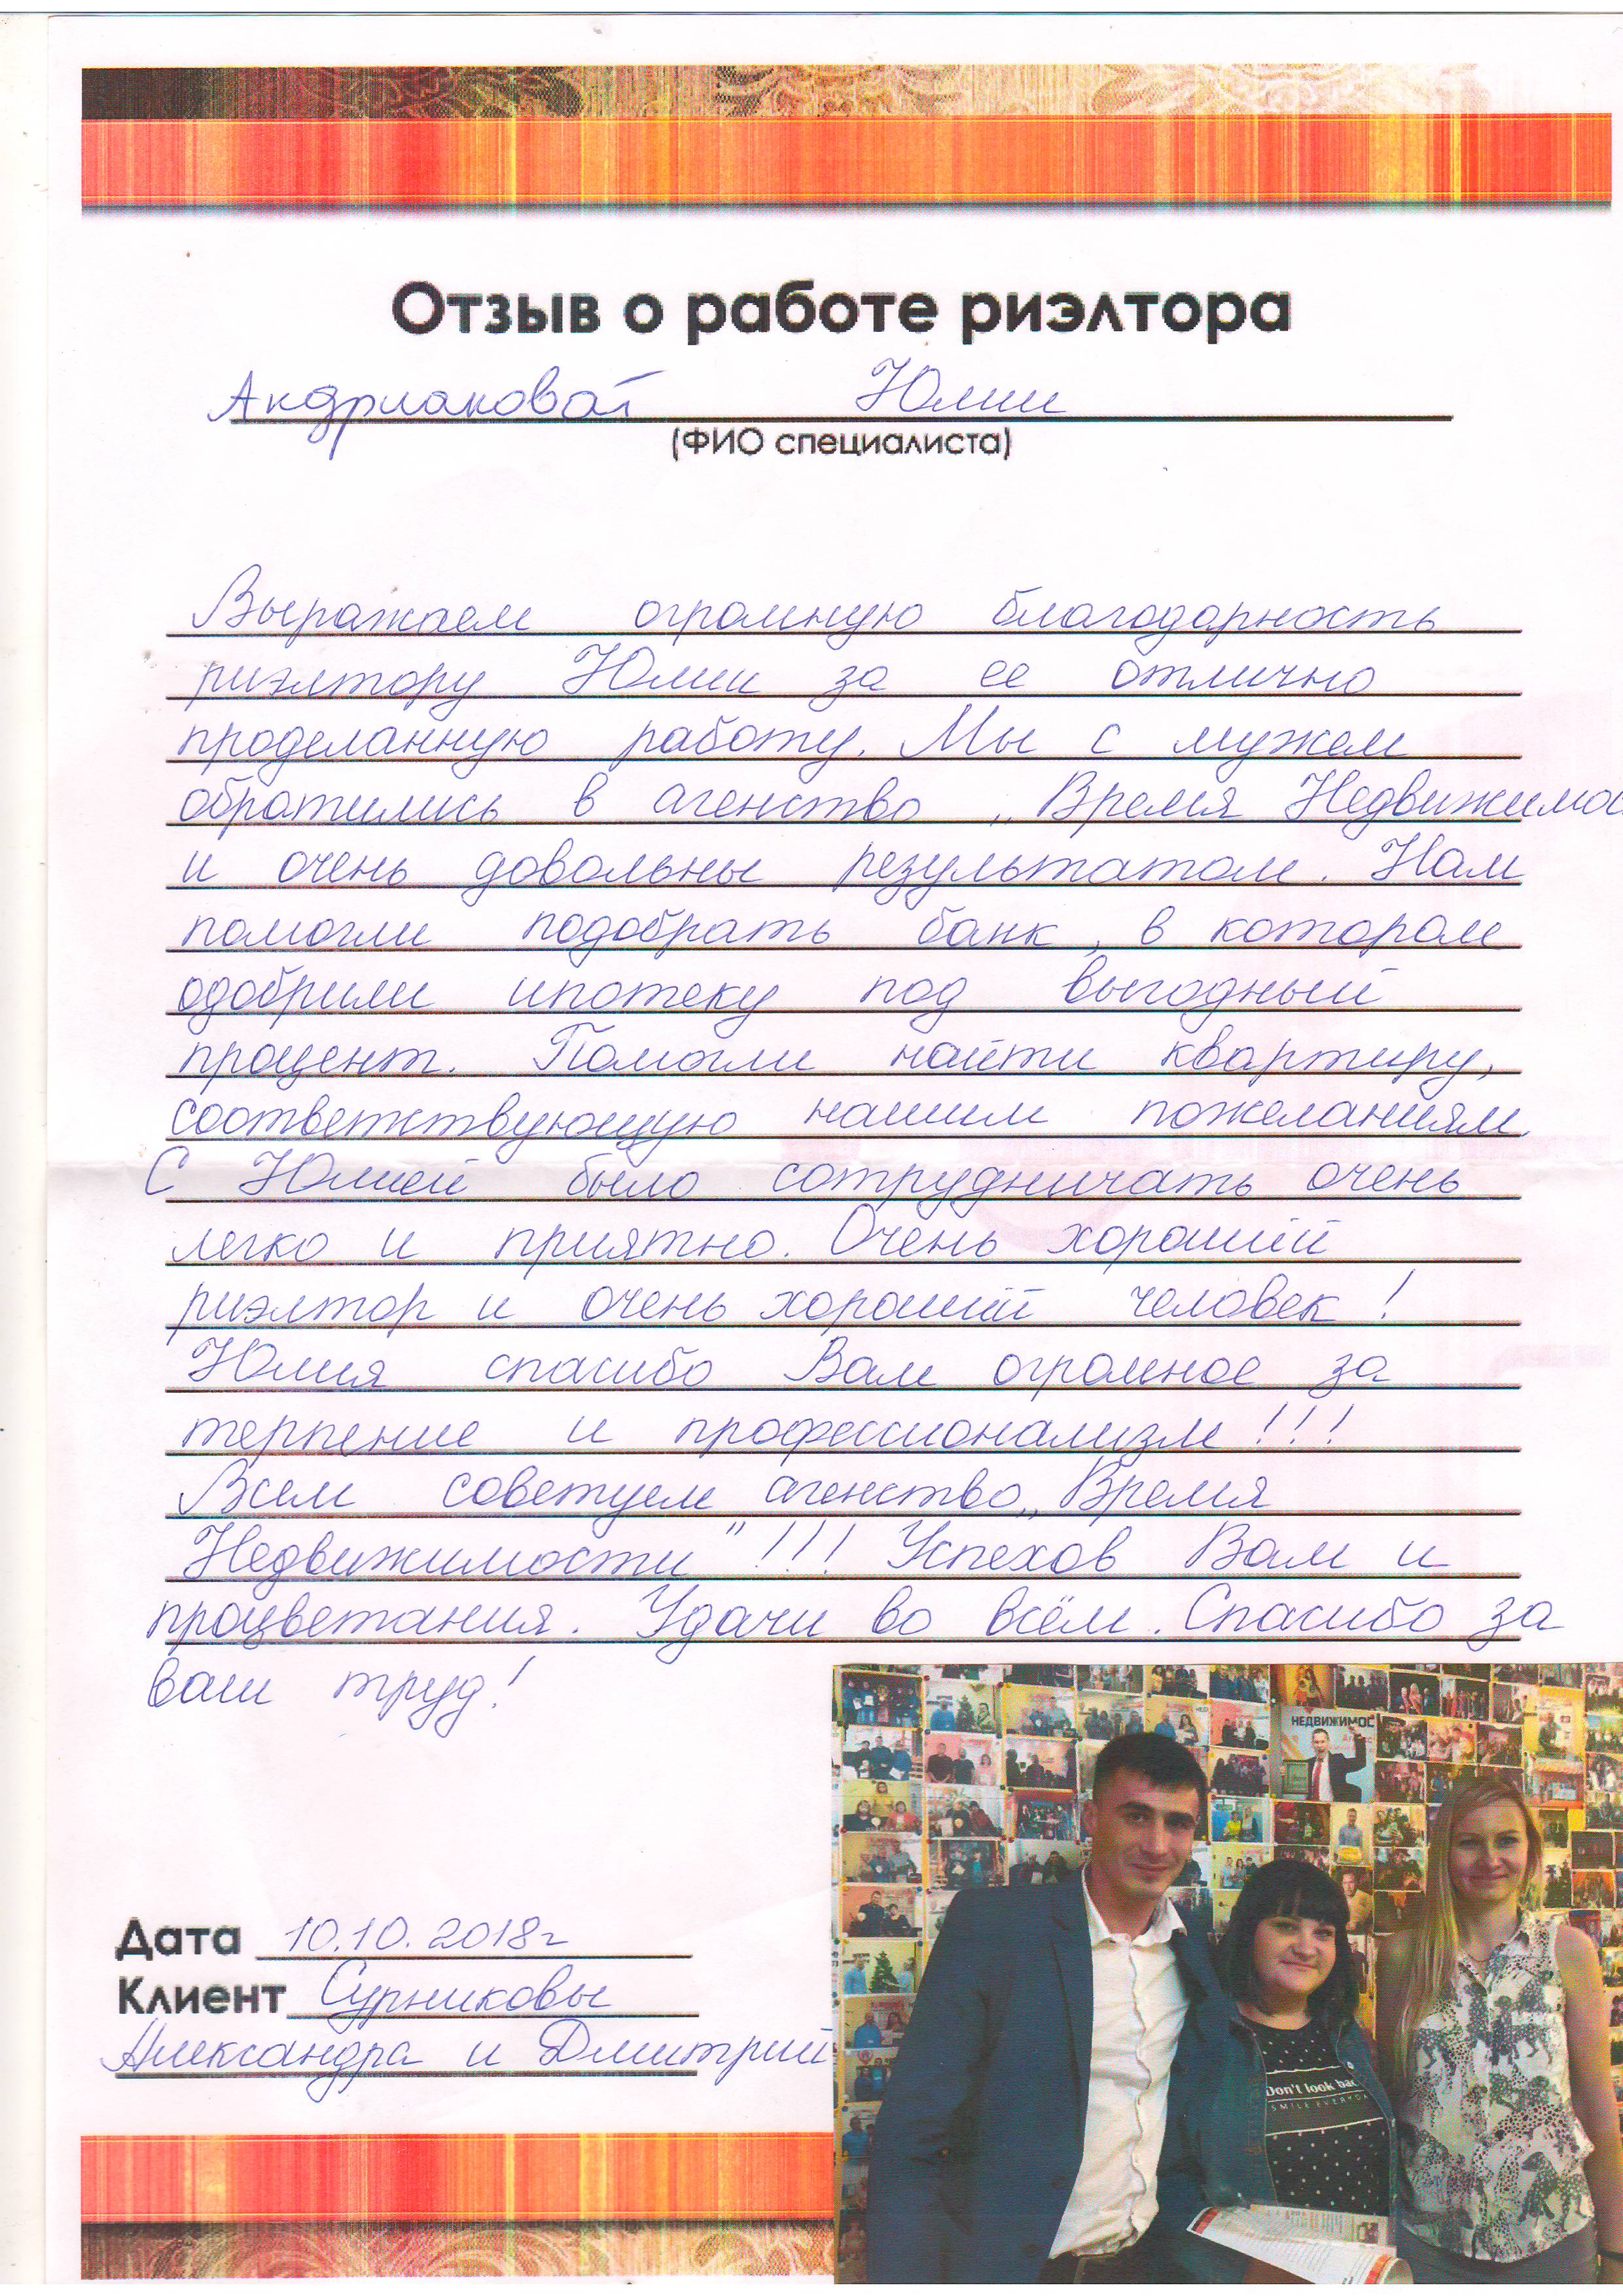 Отзыв о работе риэлтора
Андриановой Юлии
(ФИО специалиста)
Выражаем огромную благодарность
риэлтору Юлии за ее отлично
проделанную работу. Мы с мужем
обратились в агенство „Время Недвижимос
и очень довольны результатом. Нам
помогли подобрать банк, в котором
одобрили ипотеку под выгодный
процент. Помогли найти квартиру,
соответствующую нашим пожеланиям.
С Юлией было сотрудничать очень
легко и приятно. Очень хороший
риэлтор и очень хороший человек!
Юлия спасибо Вам огромное за
терпение и профессионализм!!!
Всем советуем агенство „Время
Недвижимости"!!! Успехов Вам и
процветания. Удачи во всём. Спасибо за
ваш труд!
НЕДВИЖИМОС
Дата 10.10.2018г
Клиент Сурниковы
Александра и Дмитрий
Don't look bac
SMILE EVERYDA